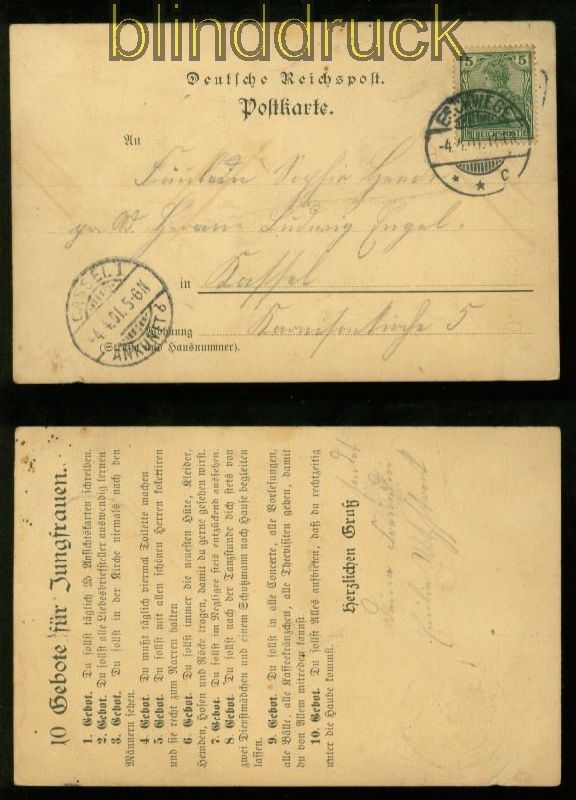 blinddruck
Deutsche Reichspost.
Postkarte.
5
REICHSPOST
ESCHWEGE
-4.4.01.
* * C
An
Fräulein Sophie
pr. Ad. Herrn Ludwig Engel.
in Kassel
CASSEL 1
-4.4.01.5-6N
ANKUNFT
Wohnung
(Straße und Hausnummer).
5
10 Gebote für Jungfrauen.
1. Gebot. Du sollst täglich 25 Ansichtskarten schreiben.
2. Gebot. Du sollst alle Liebesbriefsteller auswendig lernen
3. Gebot. Du sollst in der Kirche niemals nach den
Männern sehen.
4 Gebot. Du mußt täglich viermal Toilette machen
5. Gebot. Du sollst mit allen schönen Herren kokettiren
und sie recht zum Narren halten
6. Gebot. Du sollst immer die neuesten Hüte, Kleider,
Hemden, Hosen und Röcke tragen, damit du gerne gesehen wirst.
7. Gebot. Du sollst im Negligee stets entzückend aussehen.
8. Gebot. Du sollst nach der Tanzstunde dich stets von
zwei Dienstmädchen und einem Schutzmann nach Hause begleiten
lassen.
9. Gebot. Du sollst in alle Concerte, alle Vorlesungen,
alle Bälle, alle Kaffeekränzchen, alle Theevisiten gehen, damit
du von Allem mitreden kannst.
10. Gebot. Du sollst Alles aufbieten, daß du rechtzeitig
unter die Haube kommst.
Herzlichen Gruß